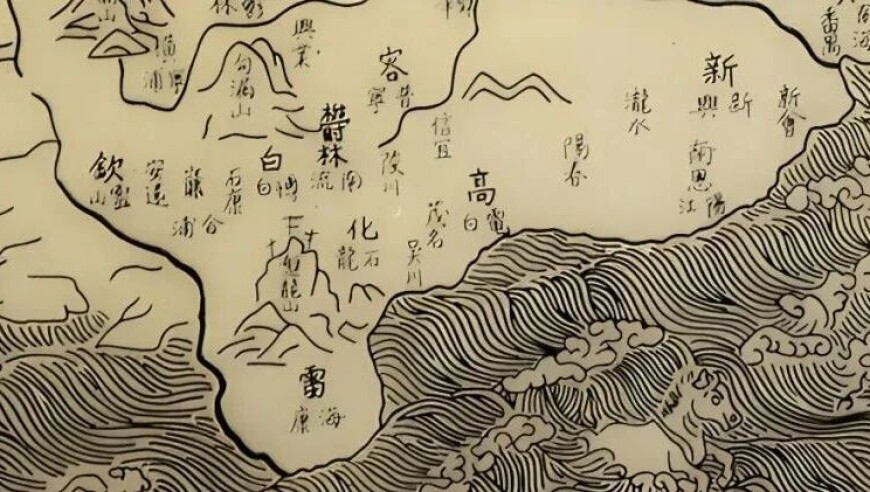 興業
番禺
勾漏山
容
普寧
新
新會
瀧水
信宜
鬱林
南流
白
博白
陸川
欽
靈山
安遠
廉
合浦
石康
高
電白
南恩
陽江
茂名
吳川
化
石龍
雷
海康